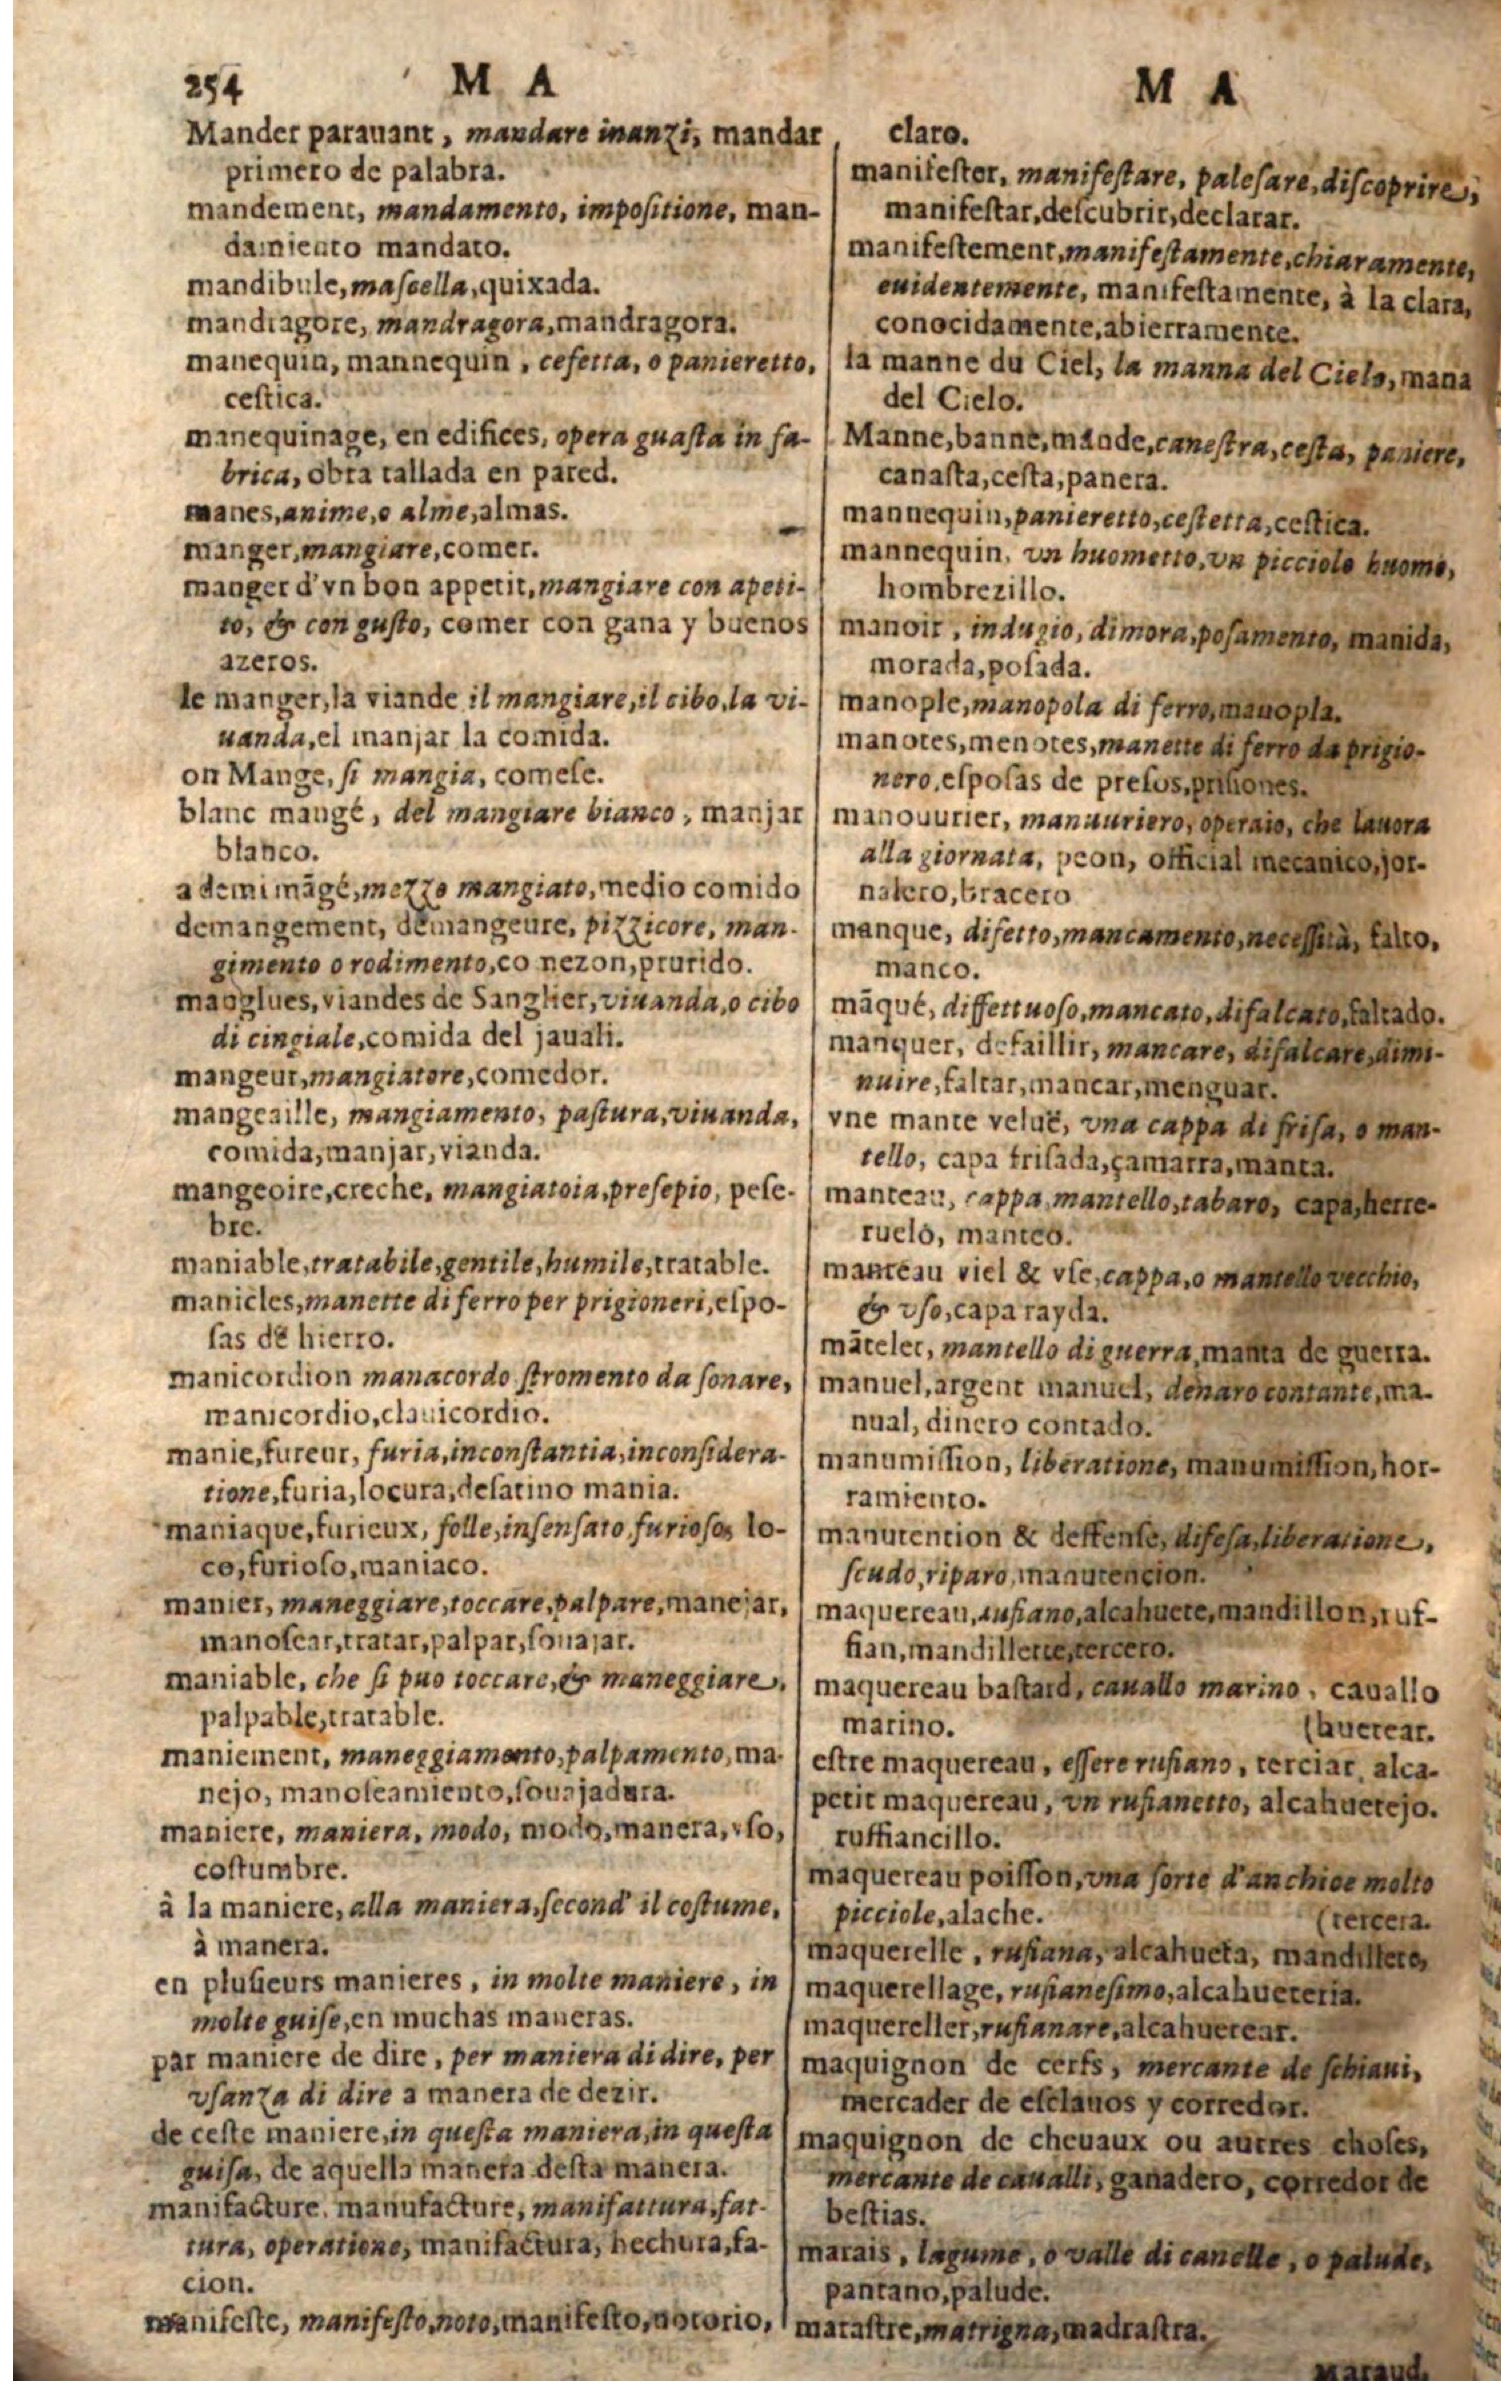 254 M A
Mander parauant, mandare inanzi, mandar
primero de palabra.
mandement, mandamento, impositione, man-
damiento mandato.
mandibule, mascella, quixada.
mandragore, mandragora, mandragora.
manequin, mannequin, cesetta, o panieretto,
cestica.
manequinage, en edifices, opera guasta in fa-
brica, obra tallada en pared.
manes, anime, o alme, almas.
manger, mangiare, comer.
manger d'vn bon appetit, mangiare con apeti-
to, & con gusto, comer con gana y buenos
azeros.
le manger, la viande il mangiare, il cibo, la vi-
uanda, el manjar la comida.
on Mange, si mangia, comese.
blanc mangé, del mangiare bianco, manjar
blanco.
a demi māgé, mezzo mangiato, medio comido
demangement, demangeure, pizzicore, man-
gimento o rodimento, co nezon, prurido.
manglues, viandes de Sanglier, viuanda, o cibo
di cingiale, comida del jauali.
mangeur, mangiatore, comedor.
mangeaille, mangiamento, pastura, viuanda,
comida, manjar, vianda.
mangeoire, creche, mangiatoia, presepio, pese-
bre.
maniable, tratabile, gentile, humile, tratable.
manicles, manette di ferro per prigioneri, espo-
sas de hierro.
manicordion manacordo stromento da sonare,
manicordio, clauicordio.
manie, fureur, furia, inconstantia, inconsidera-
tione, furia, locura, desatino mania.
maniaque, furieux, folle, insensato, furioso, lo-
co, furioso, maniaco.
manier, maneggiare, toccare, palpare, manejar,
manosear, tratar, palpar, souajar.
maniable, che si puo toccare, & maneggiare,
palpable, tratable.
maniement, maneggiamento, palpamento, ma-
nejo, manoseamiento, souajadura.
maniere, maniera, modo, modo, manera, vso,
costumbre.
à la maniere, alla maniera, second' il costume,
à manera.
en plusieurs manieres, in molte maniere, in
molte guise, en muchas maneras.
par maniere de dire, per maniera di dire, per
vsanza di dire a manera de dezir.
de ceste maniere, in questa maniera, in questa
guisa, de aquella manera desta manera.
manifacture, manufacture, manifattura, fat-
tura, operatione, manifactura, hechura, fa-
cion.
manifeste, manifesto, noto, manifesto, notorio,
M A
claro.
manifester, manifestare, palesare, discoprire,
manifestar, descubrir, declarar.
manifestement, manifestamente, chiaramente,
euidentemente, manifestamente, à la clara,
conocidamente, abierramente.
la manne du Ciel, la manna del Cielo, mana
del Cielo.
Manne, banne, mande, canestra, cesta, paniere,
canasta, cesta, panera.
mannequin, panieretto, cestetta, cestica.
mannequin, vn huometto, vn picciolo huomo,
hombrezillo.
manoir, indugio, dimora, posamento, manida,
morada, posada.
manople, manopola di ferro, manopla.
manotes, menotes, manette di ferro da prigio-
nero, esposas de presos, prisiones.
manouurier, manuuriero, operaio, che lauora
alla giornata, peon, official mecanico, jor-
nalero, bracero
manque, difetto, mancamento, necessità, falto,
manco.
māqué, diffettuoso, mancato, difalcato, faltado.
manquer, defaillir, mancare, difalcare, dimi-
nuire, faltar, mancar, menguar.
vne mante veluë, vna cappa di frisa, o man-
tello, capa frisada, çamarra, manta.
manteau, cappa, mantello, tabaro, capa, herre-
ruelo, manteo.
manteau viel & vse, cappa, o mantello vecchio,
& vso, capa rayda.
mātelet, mantello di guerra, manta de guerra.
manuel, argent manuel, denaro contante, ma-
nual, dinero contado.
manumission, liberatione, manumission, hor-
ramiento.
manutention & deffense, difesa, liberatione,
scudo, riparo, manutencion.
maquereau, rufiano, alcahuete, mandillon, ruf-
fian, mandillette, tercero.
maquereau bastard, cauallo marino, cauallo
marino. (huetear.
estre maquereau, essere rufiano, terciar, alca-
petit maquereau, vn rufianetto, alcahuetejo.
ruffiancillo.
maquereau poisson, vna sorte d'anchioe molto
picciole, alache. (tercera.
maquerelle, rufiana, alcahueta, mandillete,
maquerellage, rufianesimo, alcahueteria.
maquereller, rufianare, alcahuetear.
maquignon de cerfs, mercante de schiaui,
mercader de esclauos y corredor.
maquignon de cheuaux ou autres choses,
mercante de caualli, ganadero, corredor de
bestias.
marais, lagume, o valle di canelle, o palude,
pantano, palude.
marastre, matrigna, madrastra.
Maraud,